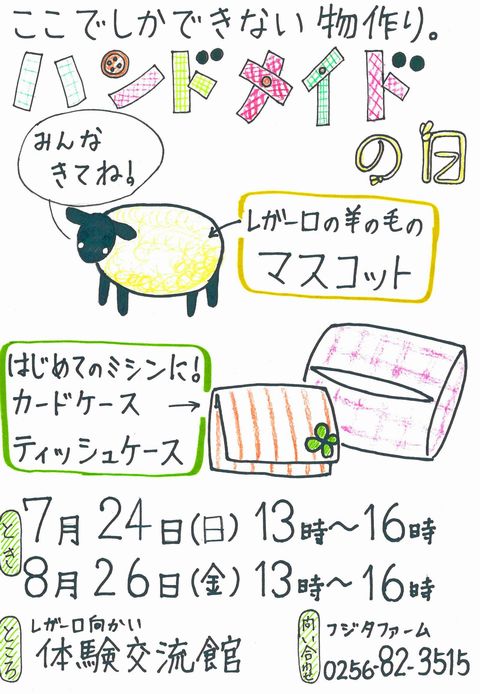 ここでしかできない物作り。
ハンドメイド
の日
みんな
きてね!
レガーロの羊の毛の
マスコット
はじめてのミシンに!
カードケース
ティッシュケース
とき
7月24日(日)13時～16時
8月26日(金)13時～16時
ところ
レガーロ向かい
体験交流館
問い合わせ
フジタファーム
0256-82-3515